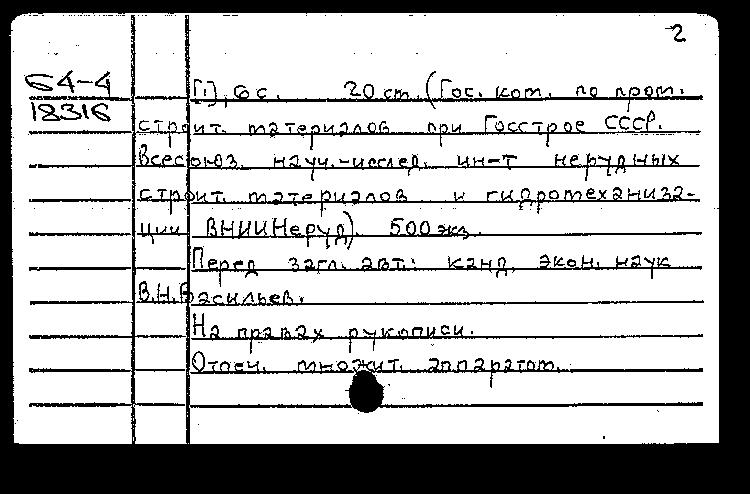 2
64-4
18316
[1], 6 с. 20 см. (Гос. ком. по пром.
строит. материалов при Госстрое СССР.
Всесоюз. науч.-исслед. ин-т нерудных
строит. материалов и гидромеханиза-
ции ВНИИНеруд). 500 экз.
Перед загл. авт.: канд. экон. наук
В.Н.Васильев.
На правах рукописи.
Отпеч. множит. аппаратом.